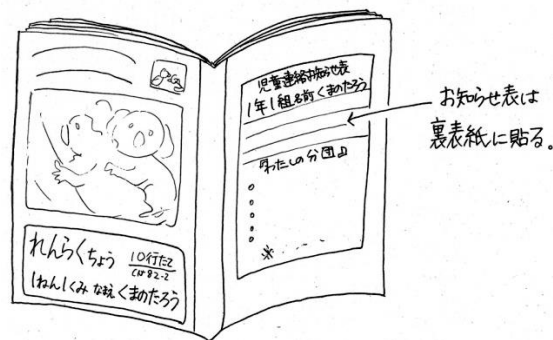 れんらくちょう
10行たて
1ねん1くみ なまえ くまのたろう
児童連絡お知らせ表
1年1組 名前 くまのたろう
『わたしの分団』
※
お知らせ表は
裏表紙に貼る。